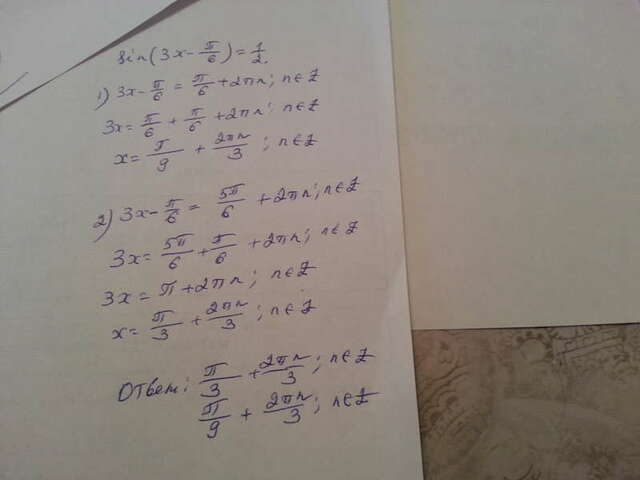 sin(3x - π/6) = 1/2.
1) 3x - π/6 = π/6 + 2πn; n∈Z
3x = π/6 + π/6 + 2πn; n∈Z
x = π/9 + 2πn/3; n∈Z
2) 3x - π/6 = 5π/6 + 2πn; n∈Z
3x = 5π/6 + π/6 + 2πn; n∈Z
3x = π + 2πn; n∈Z
x = π/3 + 2πn/3; n∈Z
Ответ: π/3 + 2πn/3; n∈Z
π/9 + 2πn/3; n∈Z